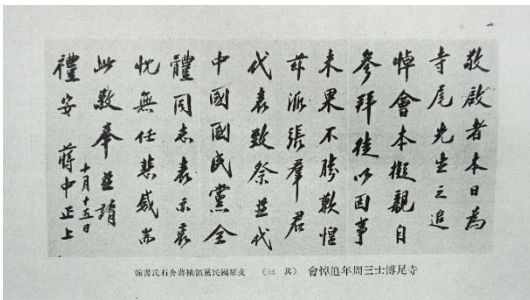 敬啟者本日為
寺尾先生之追
悼會本擬親自
參拜徒以因事
未果不勝歉惶
茲派張羣君
代表致祭並代
中國國民黨全
體同志表示哀
忱無任悲感耑
此敬奉並請
禮安 蔣中正上
十月十五日
寺尾博士三周年追悼會 (其三) 支那國民黨領袖蔣介石氏書翰